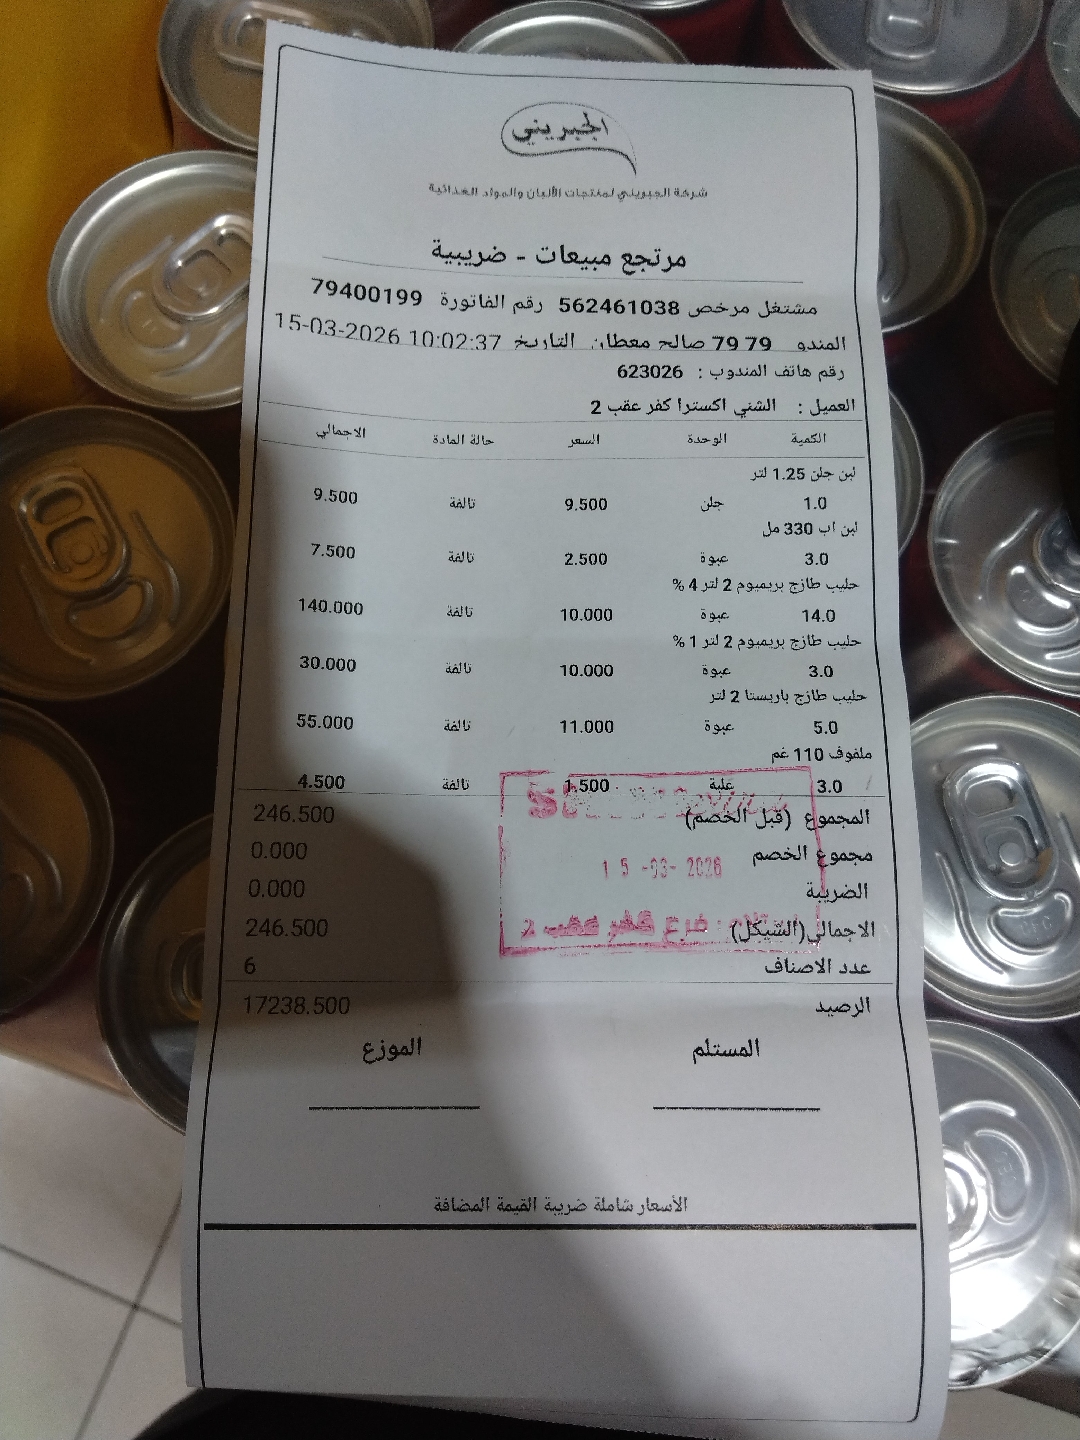 الجبريني
شركة الجبريني لمنتجات الألبان والمواد الغذائية
مرتجع مبيعات - ضريبية
مشتغل مرخص 562461038 رقم الفاتورة 79400199
المندو 79 79 صالح معطان التاريخ 15-03-2026 10:02:37
رقم هاتف المندوب : 623026
العميل : الشني اكسترا كفر عقب 2
الكمية الوحدة السعر حالة المادة الاجمالي
لبن جلن 1.25 لتر
1.0 جلن 9.500 تالفة 9.500
لبن اب 330 مل
3.0 عبوة 2.500 تالفة 7.500
حليب طازج بريميوم 2 لتر 4 %
14.0 عبوة 10.000 تالفة 140.000
حليب طازج بريميوم 2 لتر 1 %
3.0 عبوة 10.000 تالفة 30.000
حليب طازج باريستا 2 لتر
5.0 عبوة 11.000 تالفة 55.000
ملفوف 110 غم
3.0 علبة 1.500 تالفة 4.500
المجموع (قبل الخصم) 246.500
مجموع الخصم 0.000
15 -03- 2026
الضريبة 0.000
الاجمالي(الشيكل) 246.500
فرع كفر عقب 2
عدد الاصناف 6
الرصيد 17238.500
المستلم الموزع
الأسعار شاملة ضريبة القيمة المضافة